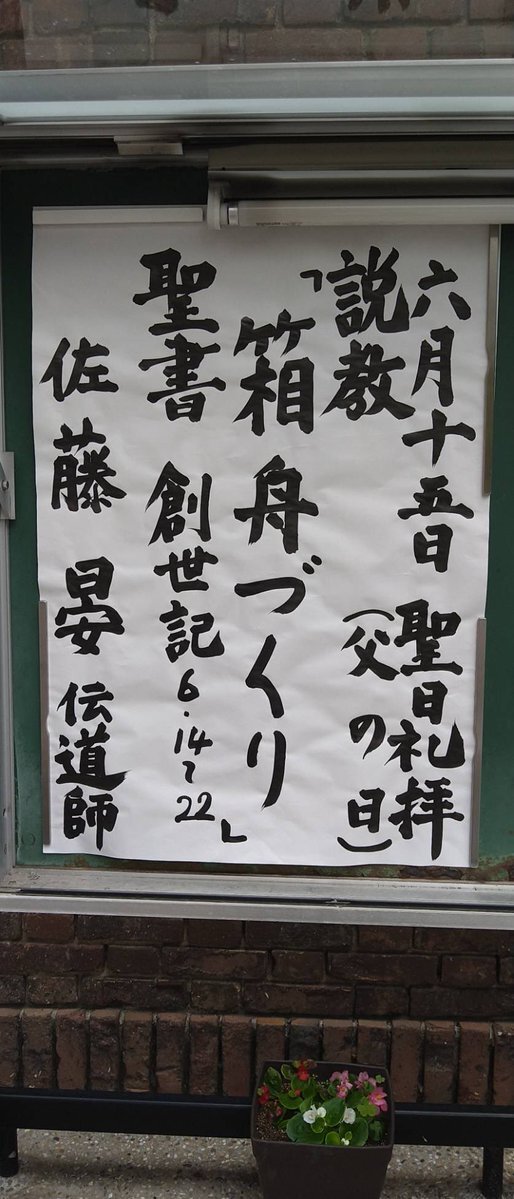 六月十五日 聖日礼拝
説教 (父の日)
「箱舟づくり」
聖書 創世記6・14~22
佐藤 晏 伝道師